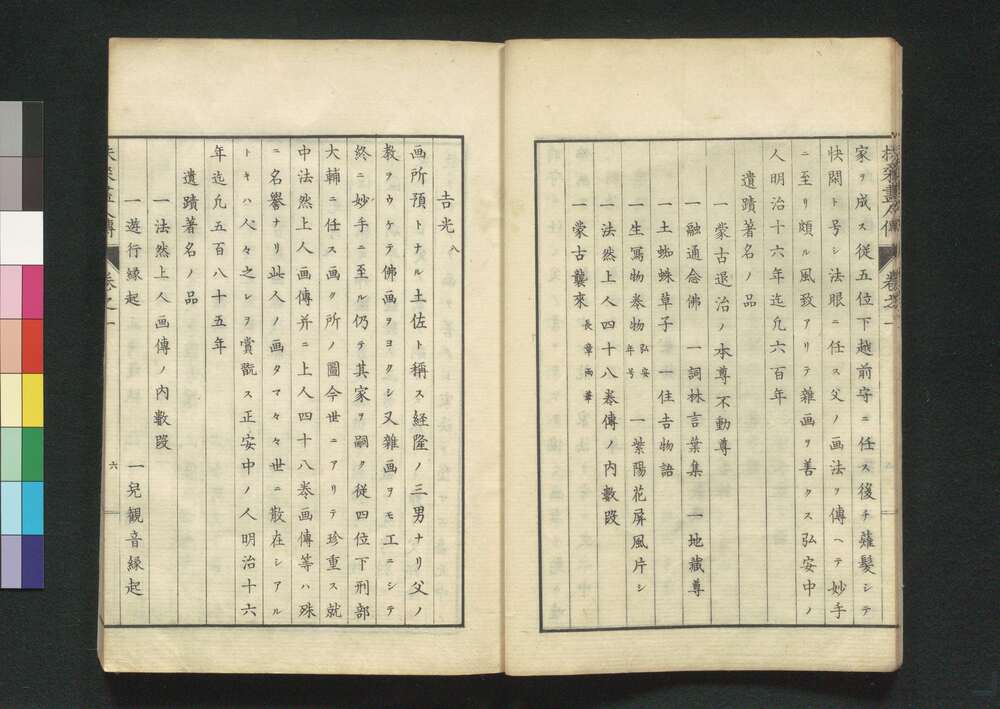 家ヲ成ス従五位下越前守ニ任ス後チ薙髮シテ
快閑ト号シ法眼ニ任ス父ノ画法ヲ傳ヘテ妙手
ニ至リ頗ル風致アリテ雜画ヲ善クス弘安中ノ
人明治十六年迄凡六百年
遺蹟著名ノ品
一蒙古退治ノ本尊不動尊
一融通念佛 一詞林言葉集 一地蔵尊
一土蜘蛛草子 一住吉物語
一生寫物巻物 弘安年号 一紫陽花屏風片シ
一法然上人四十八巻傳ノ内數段
一蒙古襲來 長章両筆
吉光
画所預トナル土佐ト稱ス経隆ノ三男ナリ父ノ
教ヲウケテ佛画ヲヨクシ又雜画ヲモエニシテ
終ニ妙手ニ至ル仍テ其家ヲ嗣ク従四位下刑部
大輔ニ任ス画ク所ノ圖今世ニアリテ珍重ス就
中法然上人画傳并ニ上人四十八巻画傳等ハ殊
ニ名譽ナリ此人ノ画タマ々々世ニ散在シアル
トキハ人々之レヲ賞翫ス正安中ノ人明治十六
年迄凡五百八十五年
遺蹟著名ノ品
一法然上人画傳ノ内數段
一遊行縁起 一兒観音縁起
六